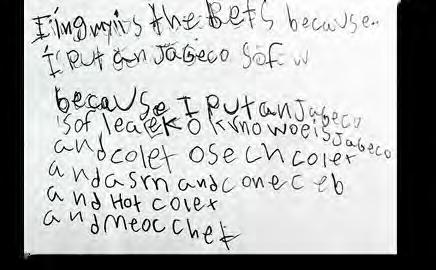 is the Bets because
I put an Jabeco sof w
because I put an Jabeco
sof leaeko knowoeis Jabeco
and colet ose ch coler
and asrn and conec eb
and Hot coler
and meoc chet